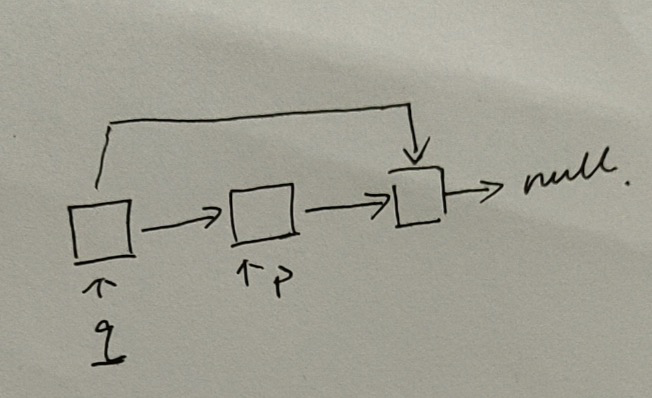 null.
p
q